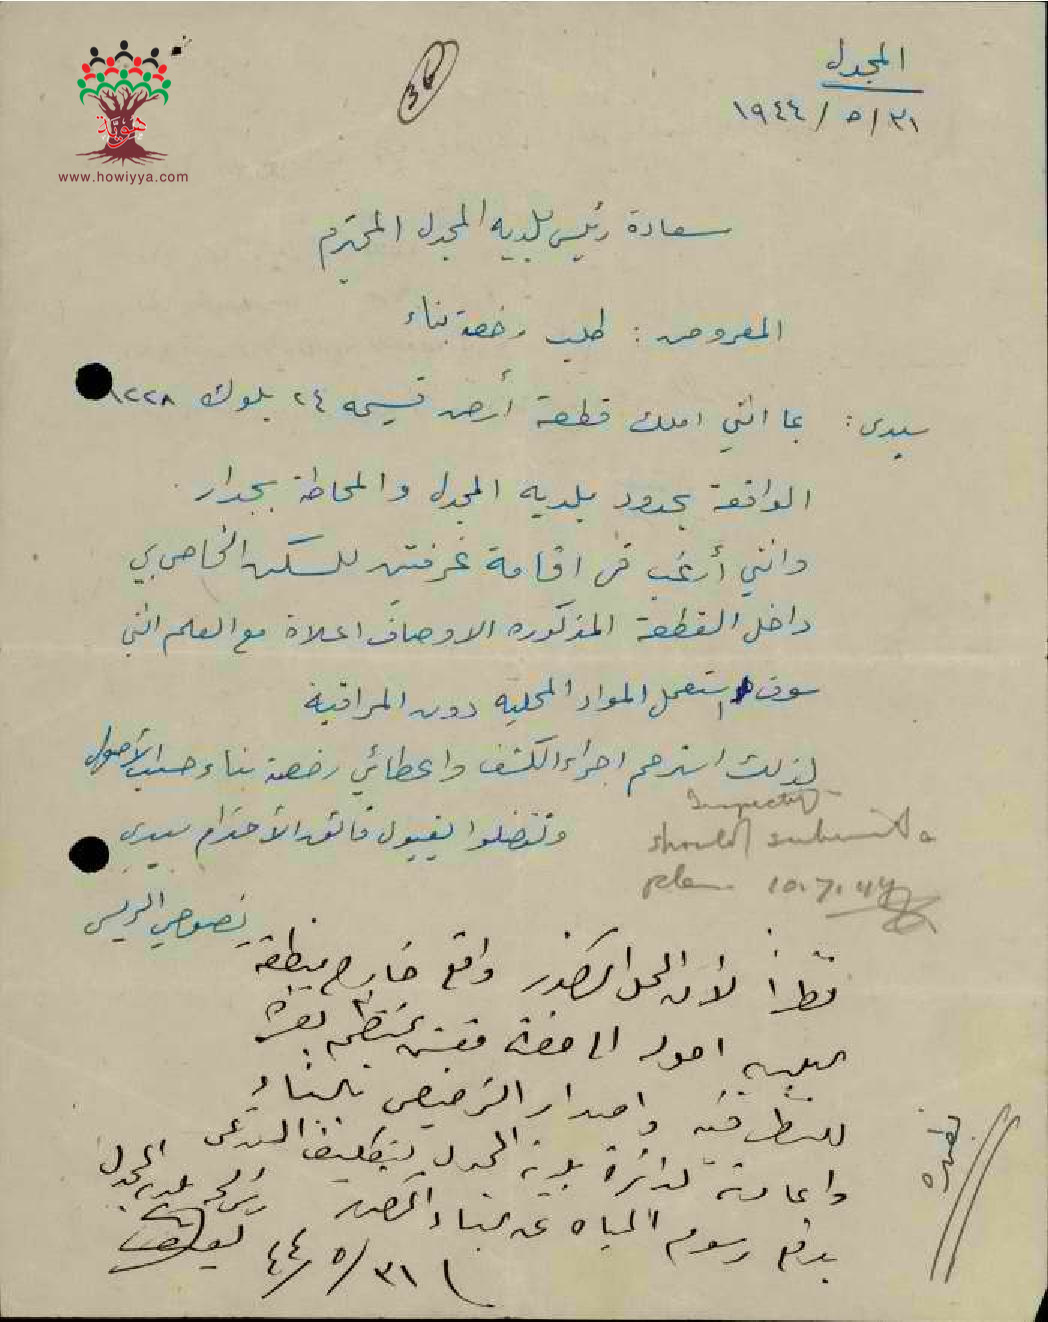 المجدل
٣١/٥/١٩٤٤
هوية
www.howiyya.com
سعادة رئيس بلديه المجدل المحترم
المعروض: طلب رخصة بناء
سيدى: بما انني املك قطعة أرض قسيمه ٢٤ بلوك ١٢٢٨
الواقعة بحدود بلديه المجدل والمحاطة بجدار.
وانني أرغب في اقامة غرفتين للسكن الخاص بي
داخل القطعة المذكوره الاوصاف اعلاة مع العلم انني
سوف استعمل المواد المحليه دون المراقبة
لذلك استرحم اجراء الكشف واعطائي رخصة بناء حسب الأصول
وتفضلوا بقبول فائق الأحترام سيدى
Inspector
should submit a
plan 10.7.44
نظراً لأن المحل المذكور واقع خارج منطقة
البلديه احول الى حضرة مفتش تنظيم
للنظر فيه واصدار الترخيص بالبناء
واعادته لدائرة بلدية المجدل لتكليف المستدعى
بدفع رسوم المياه عن البناء
رئيس بلدية المجدل
٣١/٥/٤٤